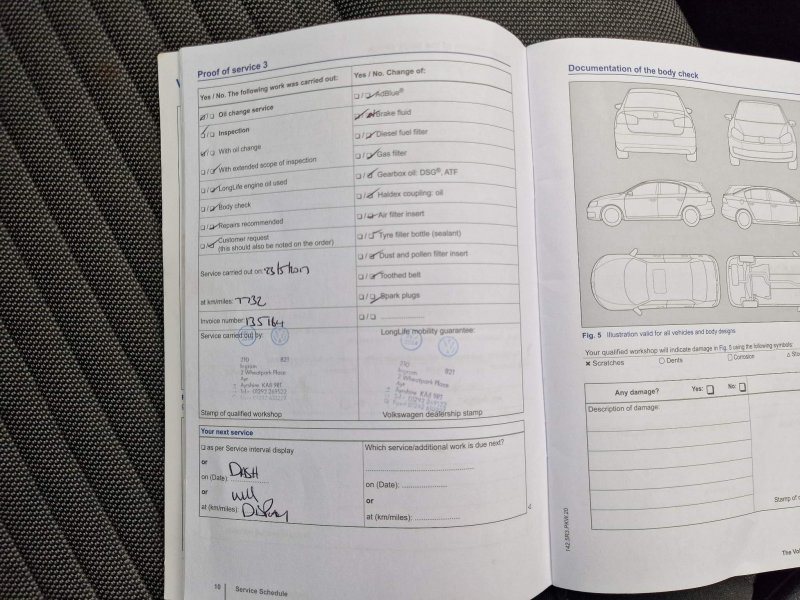 Proof of service 3
Yes / No. The following work was carried out:
Oil change service
Inspection
With oil change
With extended scope of inspection
LongLife engine oil used
Body check
Repairs recommended
Customer request
(this should also be noted on the order)
Service carried out on: 23/5/2017
at km/miles: 7732
Invoice number 135764
Service carried out by:
210 821
Ingram
2 Wheatpark Place
Ayr
Ayrshire KA8 9RT
Stamp of qualified workshop
Yes / No. Change of:
AdBlue®
Brake fluid
Diesel fuel filter
Gas filter
Gearbox oil: DSG®, ATF
Haldex coupling: oil
Air filter insert
Tyre filler bottle (sealant)
Dust and pollen filter insert
Toothed belt
Spark plugs
LongLife mobility guarantee:
210 821
Ingram
2 Wheatpark Place
Ayr
Ayrshire KA8 9RT
Volkswagen dealership stamp
Your next service
as per Service interval display
or
on (Date): DASH
or will
at (km/miles): Display
Which service/additional work is due next?
on (Date):
or
at (km/miles):
10 Service Schedule
Documentation of the body check
Fig. 5 Illustration valid for all vehicles and body designs.
Your qualified workshop will indicate damage in Fig. 5 using the following symbols:
Scratches
Dents
Corrosion
Any damage? Yes: No:
Description of damage:
Stamp of
142.5R3.PKW.20